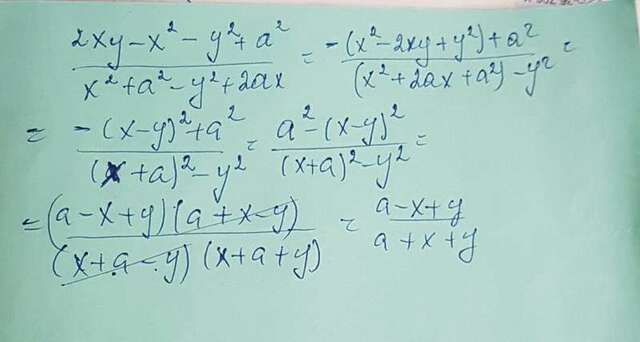 (2xy-x²-y²+a²)/(x²+a²-y²+2ax) = (-(x²-2xy+y²)+a²)/((x²+2ax+a²)-y²) =
= (-(x-y)²+a²)/((x+a)²-y²) = (a²-(x-y)²)/((x+a)²-y²) =
= ((a-x+y)(a+x-y))/((x+a-y)(x+a+y)) = (a-x+y)/(a+x+y)